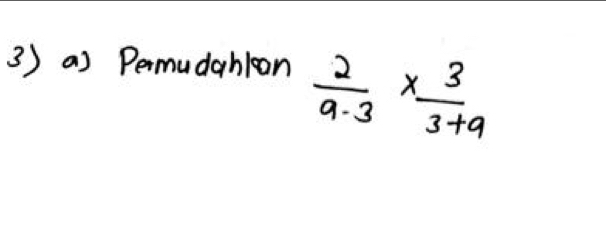 3) a) Permudahkan 2/(9-3) × 3/(3+9)